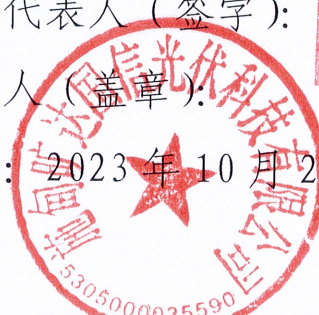 代表人（签字）：
人（盖章）：
：2023年10月2
施甸旷达国信光伏科技有限公司
5305000035590